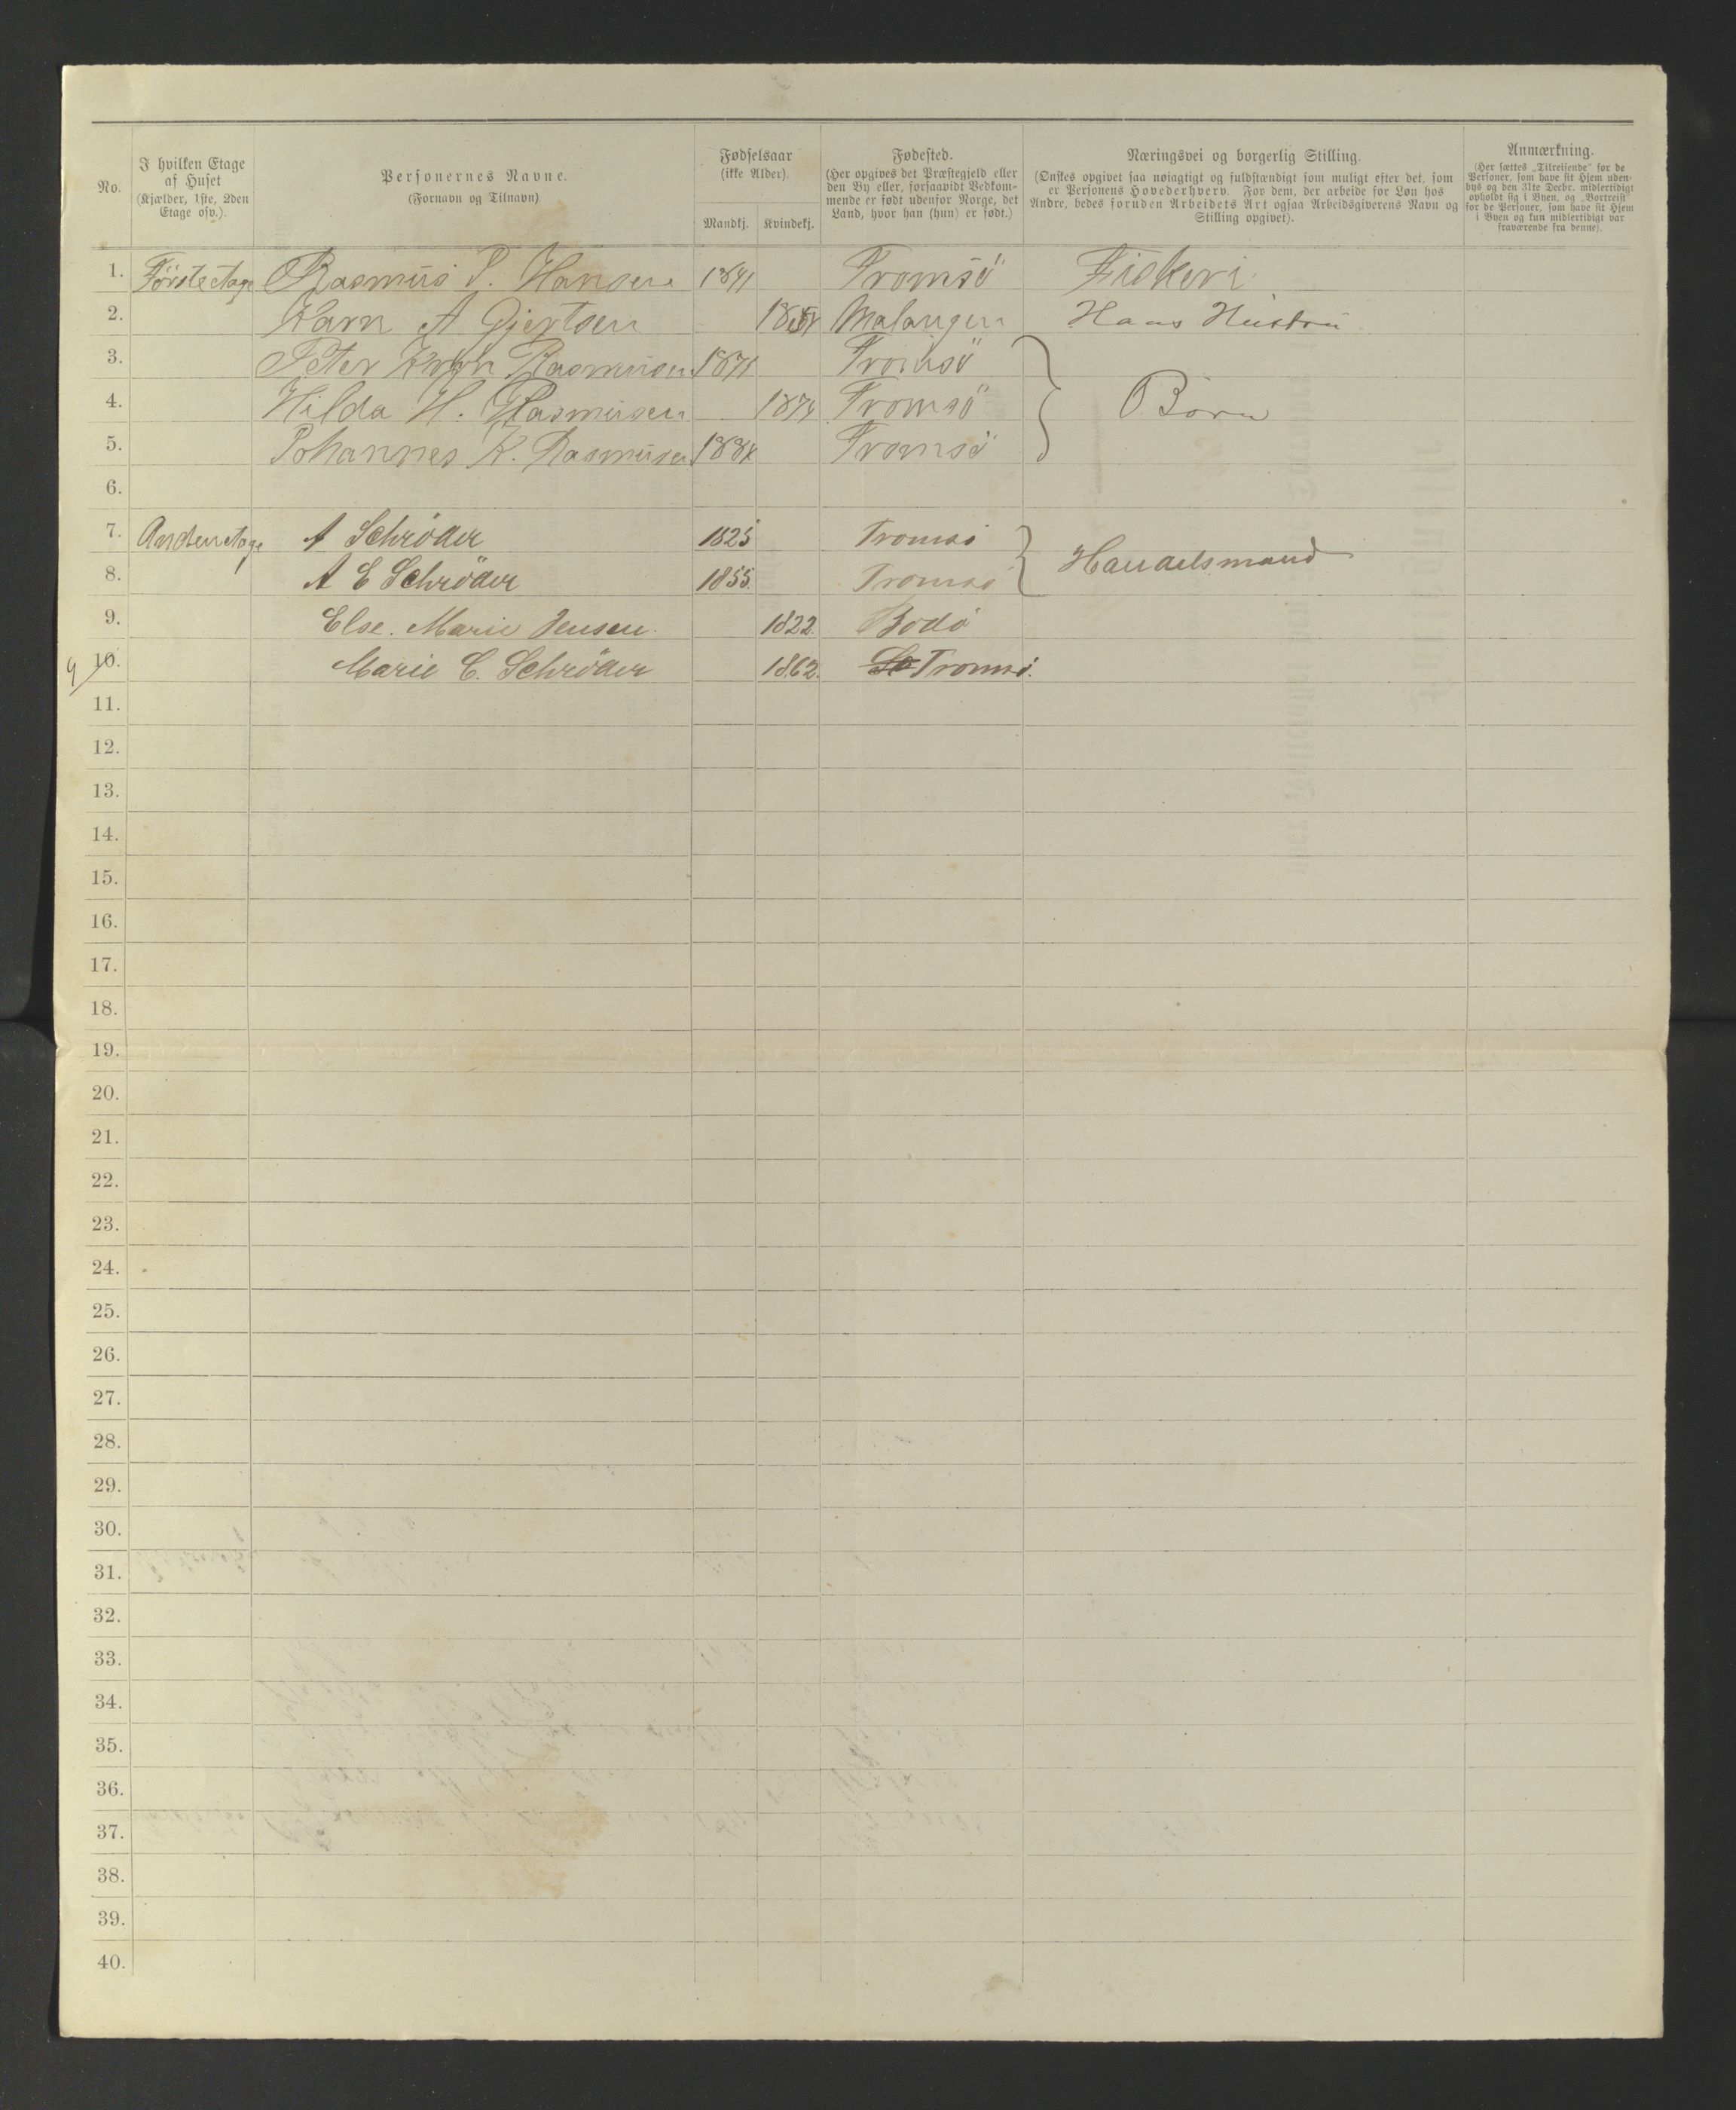 No.
I hvilken Etage af Huset (Kjælder, 1ste, 2den Etage osv.).
Personernes Navne. (Fornavn og Tilnavn)
Fødselsaar (ikke Alder).
Mandkj.
Kvindekj.
Fødested. (Her opgives det Præstegjeld eller den By eller, forsaavidt Vedkommende er født udenfor Norge, det Land, hvor han (hun) er født.)
Næringsvei og borgerlig Stilling. (Ønskes opgivet saa nøiagtigt og fuldstændigt som muligt efter det, som er Personens Hovederhverv. For dem, der arbeide for Løn hos Andre, bedes foruden Arbeidets Art ogsaa Arbeidsgiverens Navn og Stilling opgivet).
Anmærkning. (Her sættes „Tilreisende“ for de Personer, som have sit Hjem udenbys og den 31te Decbr. midlertidigt opholdt sig i Byen, og „Bortreist“ for de Personer, som have sit Hjem i Byen og kun midlertidigt var fraværende fra denne).
1. Første etage Rasmus P. Hansen 1841 Tromsö Fiskeri
2. Karn A Gjertsen Malangen Hans Hustru
3. Peter Rasmusen Tromsö
4. Hilda H. Rasmusen 1874 Tromsö Börn
5. Johannes K. Rasmusen Tromsö
6.
7. Anden etage A Schröder 1825 Tromsö
8. A E Schröder 1855. Tromsö Handelsmand
9. Else. Marie Jensen. 1822. Bodö
9 10. Marie C. Schröder 1862. Tromsö.
11.
12.
13.
14.
15.
16.
17.
18.
19.
20.
21.
22.
23.
24.
25.
26.
27.
28.
29.
30.
31.
32.
33.
34.
35.
36.
37.
38.
39.
40.